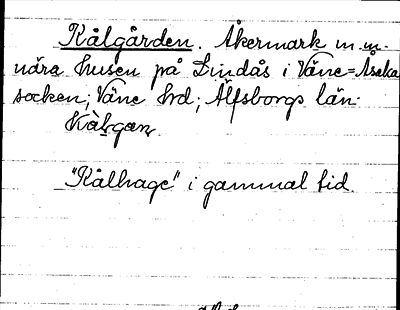 Kålgården. Åkermark m.m.
nära husen på Lindås i Väne-Åsaka
socken; Väne hrd; Älfsborgs län.
Kàlgan,
"Kålhage" i gammal tid.